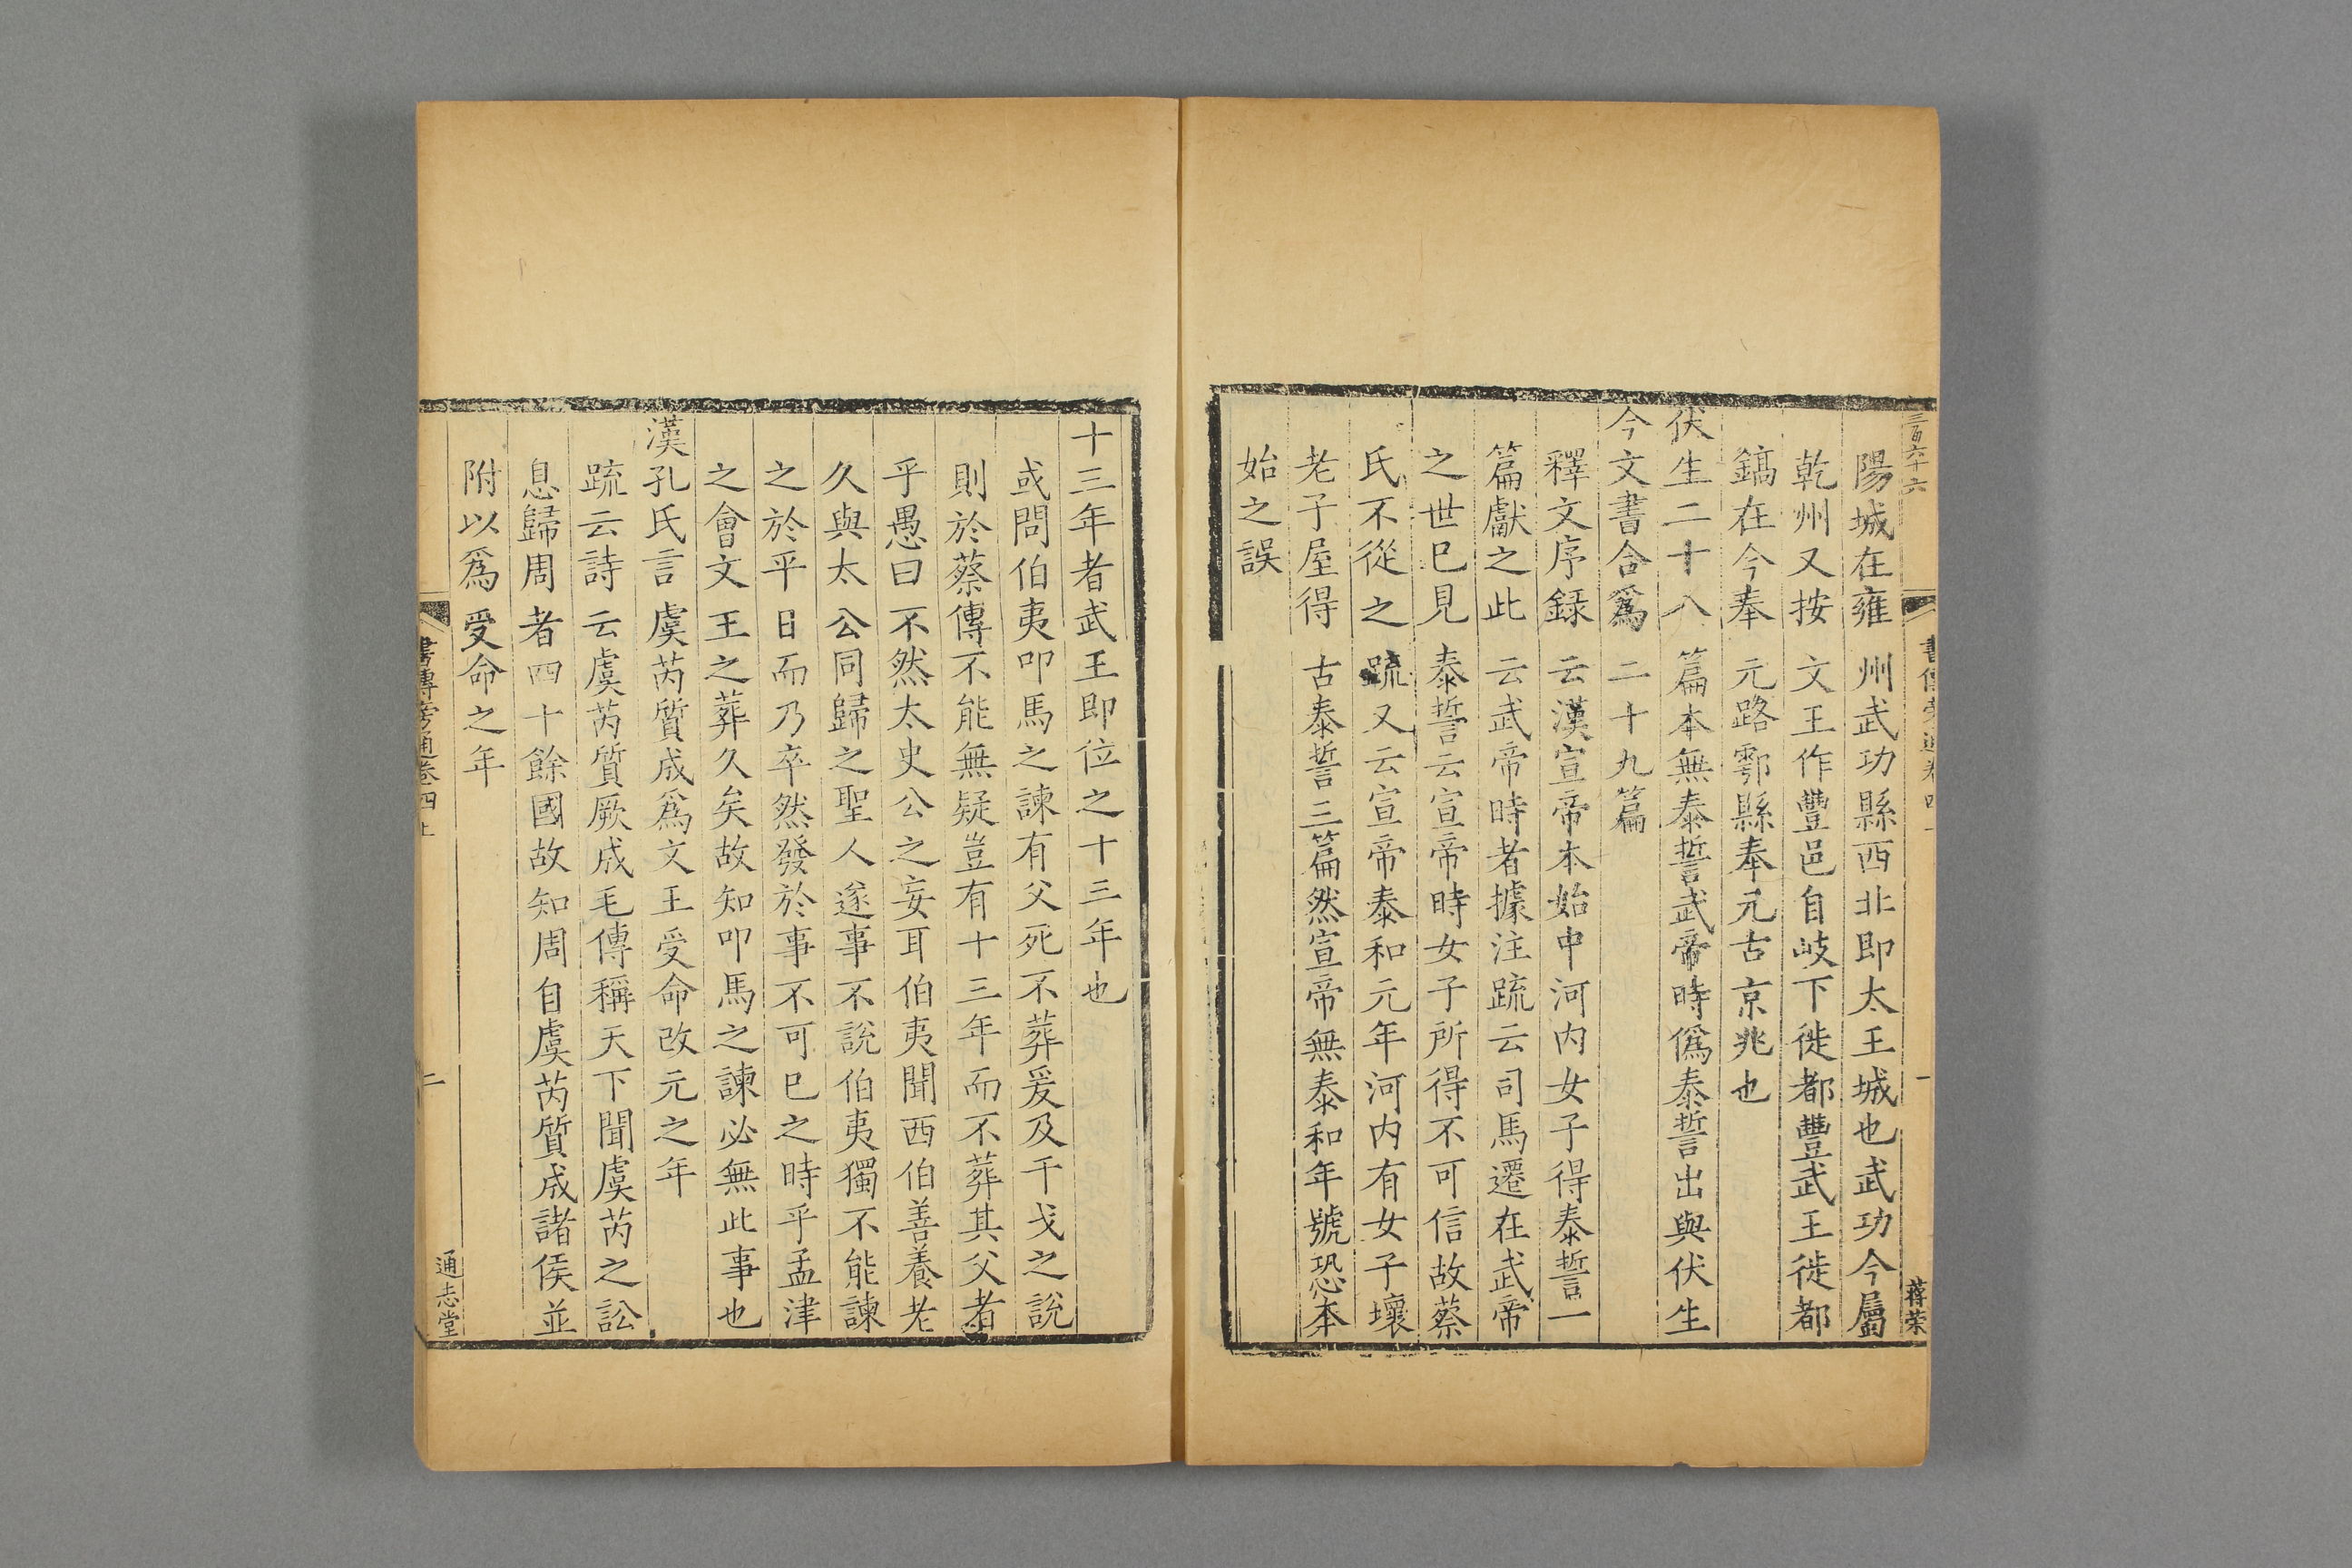 三百六十六
書傳旁通卷四
一
蔣榮
陽城在雍州武功縣西北即太王城也武功今屬
乾州又按文王作豐邑自岐下徙都豐武王徙都
鎬在今奉元路鄠縣奉元古京兆也
伏生二十八篇本無泰誓武帝時僞泰誓出與伏生
今文書合爲二十九篇
釋文序録云漢宣帝本始中河内女子得泰誓一
篇獻之此云武帝時者據注疏云司馬遷在武帝
之世巳見泰誓云宣帝時女子所得不可信故蔡
氏不從之疏又云宣帝泰和元年河内有女子壞
老子屋得古泰誓三篇然宣帝無泰和年號恐本
始之誤
十三年者武王即位之十三年也
或問伯夷叩馬之諫有父死不葬爰及干戈之說
則於蔡傳不能無疑豈有十三年而不葬其父者
乎愚曰不然太史公之妄耳伯夷聞西伯善養老
久與太公同歸之聖人遂事不說伯夷獨不能諫
之於平日而乃卒然發於事不可巳之時乎孟津
之會文王之葬久矣故知叩馬之諫必無此事也
漢孔氏言虞芮質成爲文王受命改元之年
疏云詩云虞芮質厥成毛傳稱天下聞虞芮之訟
息歸周者四十餘國故知周自虞芮質成諸侯並
附以爲受命之年
書傳旁通卷四上
二
通志堂